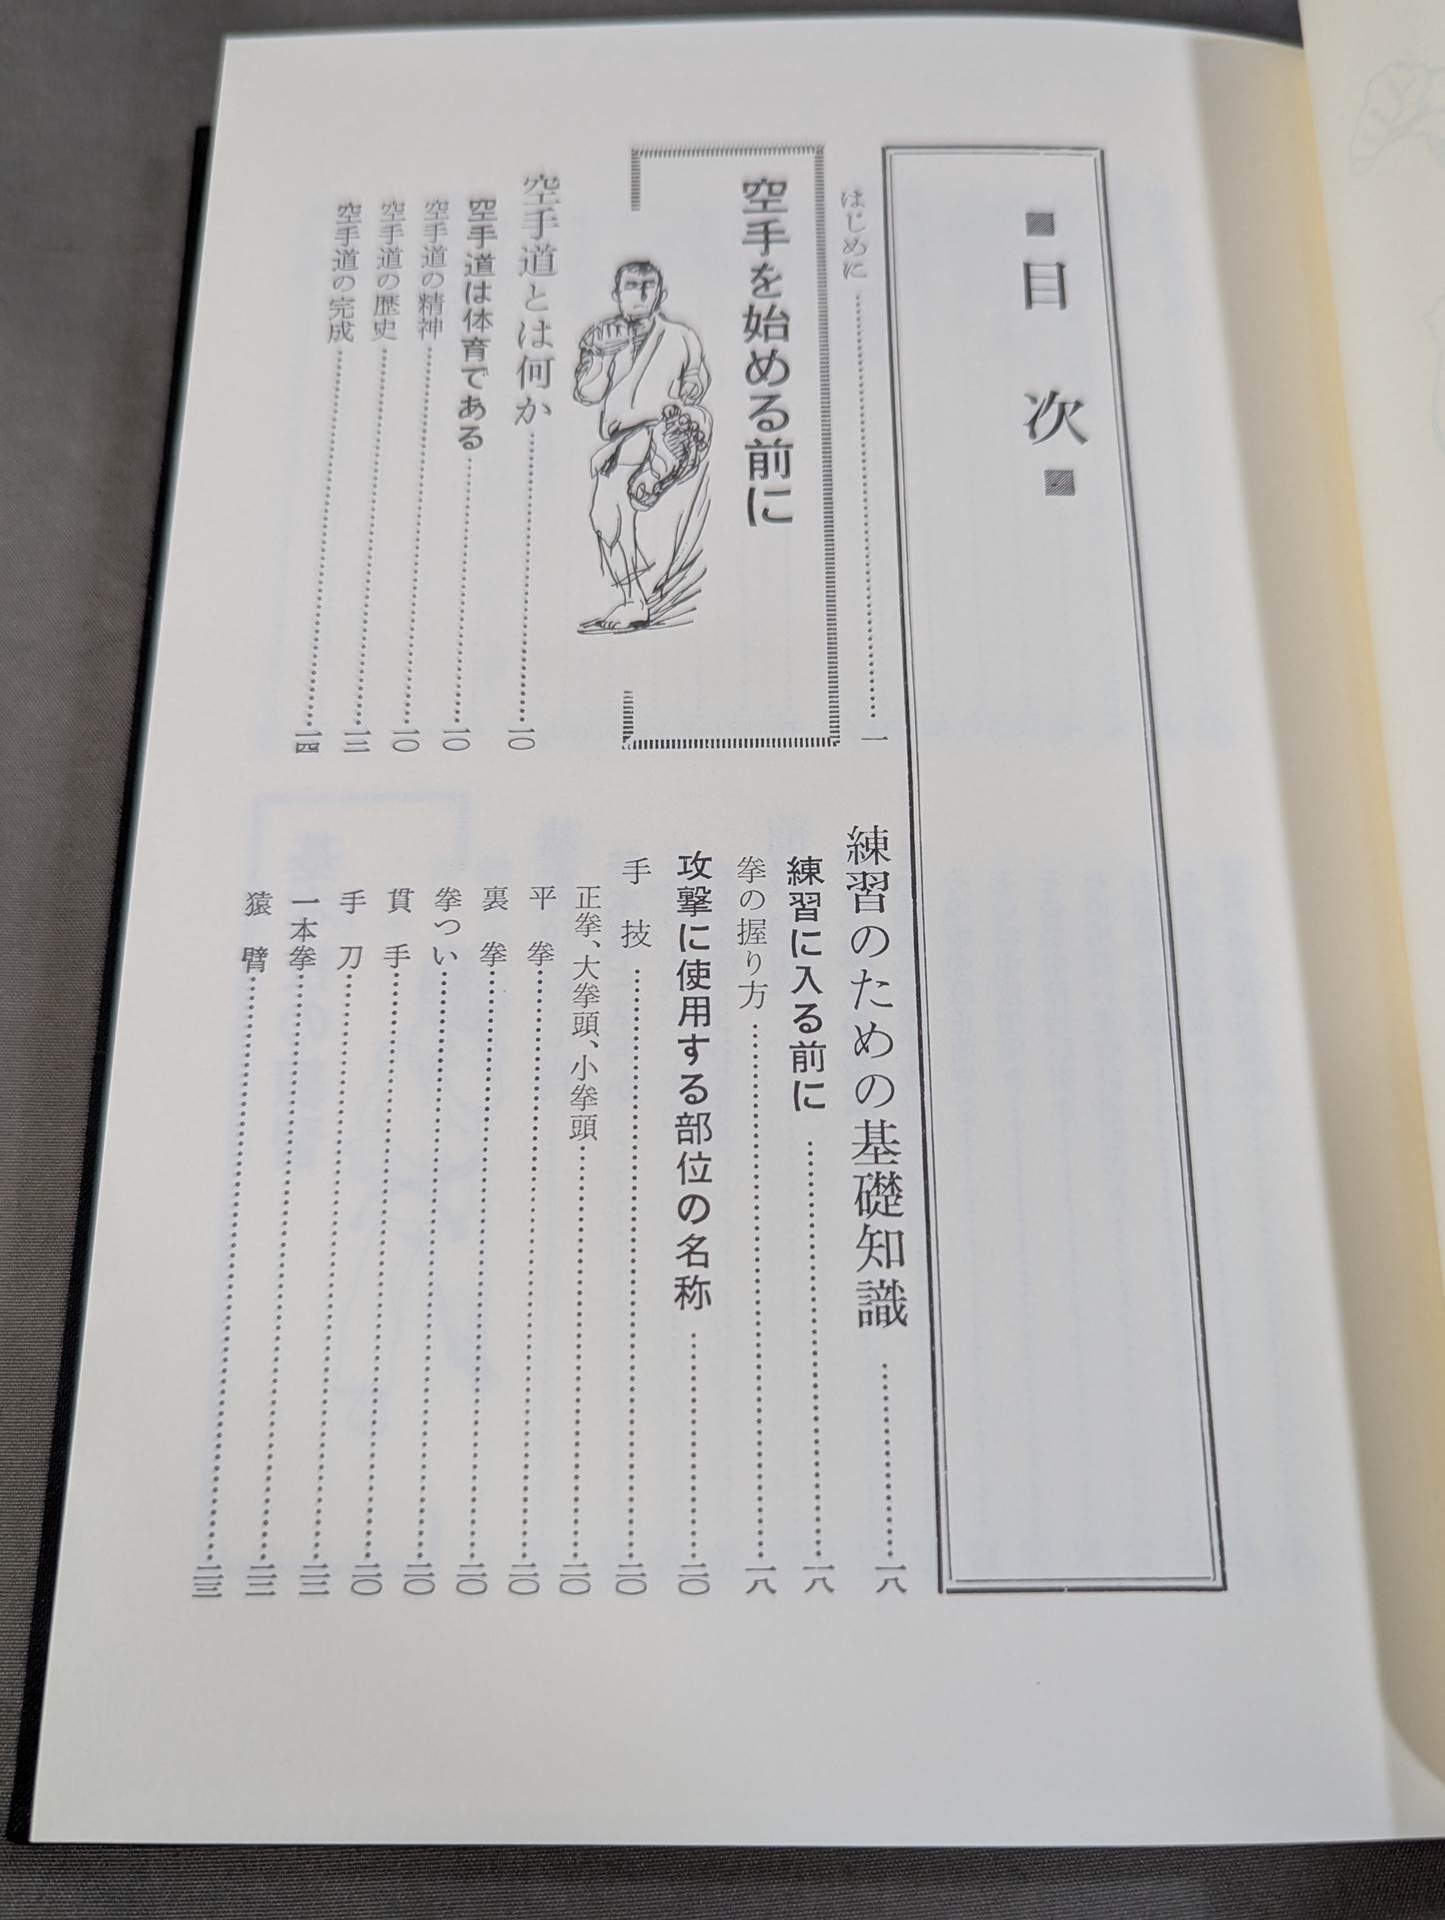 ■目 次■
はじめに……一
空手を始める前に
空手道とは何か……一〇
空手道は体育である……一〇
空手道の精神……一〇
空手道の歴史……一二
空手道の完成……一四
練習のための基礎知識……一八
練習に入る前に……一八
拳の握り方……一八
攻撃に使用する部位の名称……二〇
手 技……二〇
正拳、大拳頭、小拳頭……二〇
平 拳……二〇
裏 拳……二〇
拳つい……二〇
貫 手……二〇
手 刀……二二
一本拳……二二
猿 臂……二三